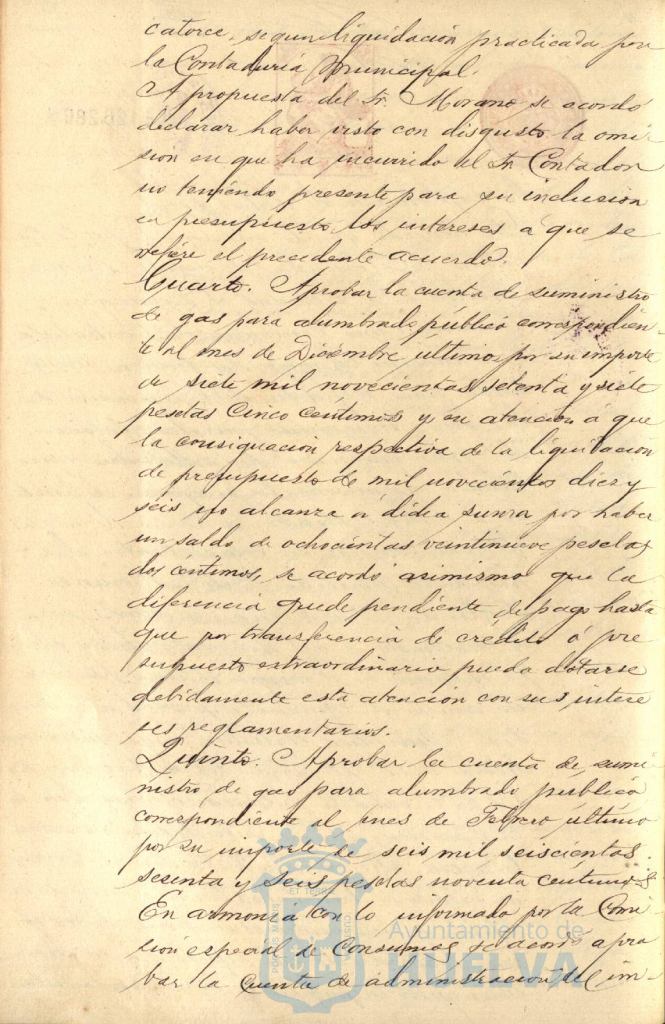 catorce, segun liquidación practicada por
la Contaduría Municipal.
A propuesta del Sr. Morano, se acordó
declarar haber visto con disgusto la omi-
sion en que ha incurrido el Sr. Contador
no teniendo presente para su inclusion
en presupuesto, los intereses a que se
refiere el precedente acuerdo.
Cuarto. Aprobar la cuenta de suministro
de gas para alumbrado público correspondien-
te al mes de Diciembre último, por su importe
de siete mil novecientas setenta y siete
pesetas cinco centimos y en atencion á que
la consignacion respectiva de la liquidacion
de presupuesto de mil novecientos diez y
seis no alcanza á dicha suma por haber
un saldo de ochocientas veintinueve pesetas
dos centimos, se acordó asimismo que la
diferencia quede pendiente de pago hasta
que por transferencia de crédito ó pre
supuesto extraordinario pueda dotarse
debidamente esta atencion con sus intere
ses reglamentarios.
Quinto. Aprobar la cuenta de sumi
nistro de gas para alumbrado publico
correspondiente al mes de Febrero último
por su importe de seis mil seiscientas
sesenta y seis pesetas noventa centimos
En armonia con lo informado por la Comi
sion especial de Consumos se acordó apro
bar la cuenta de administracion del im-
Ayuntamiento de
HUELVA